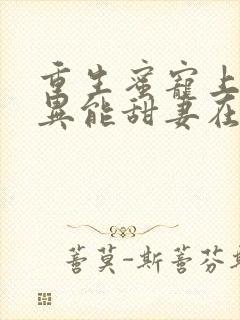 重生蜜宠上
异能甜妻在
莫-斯